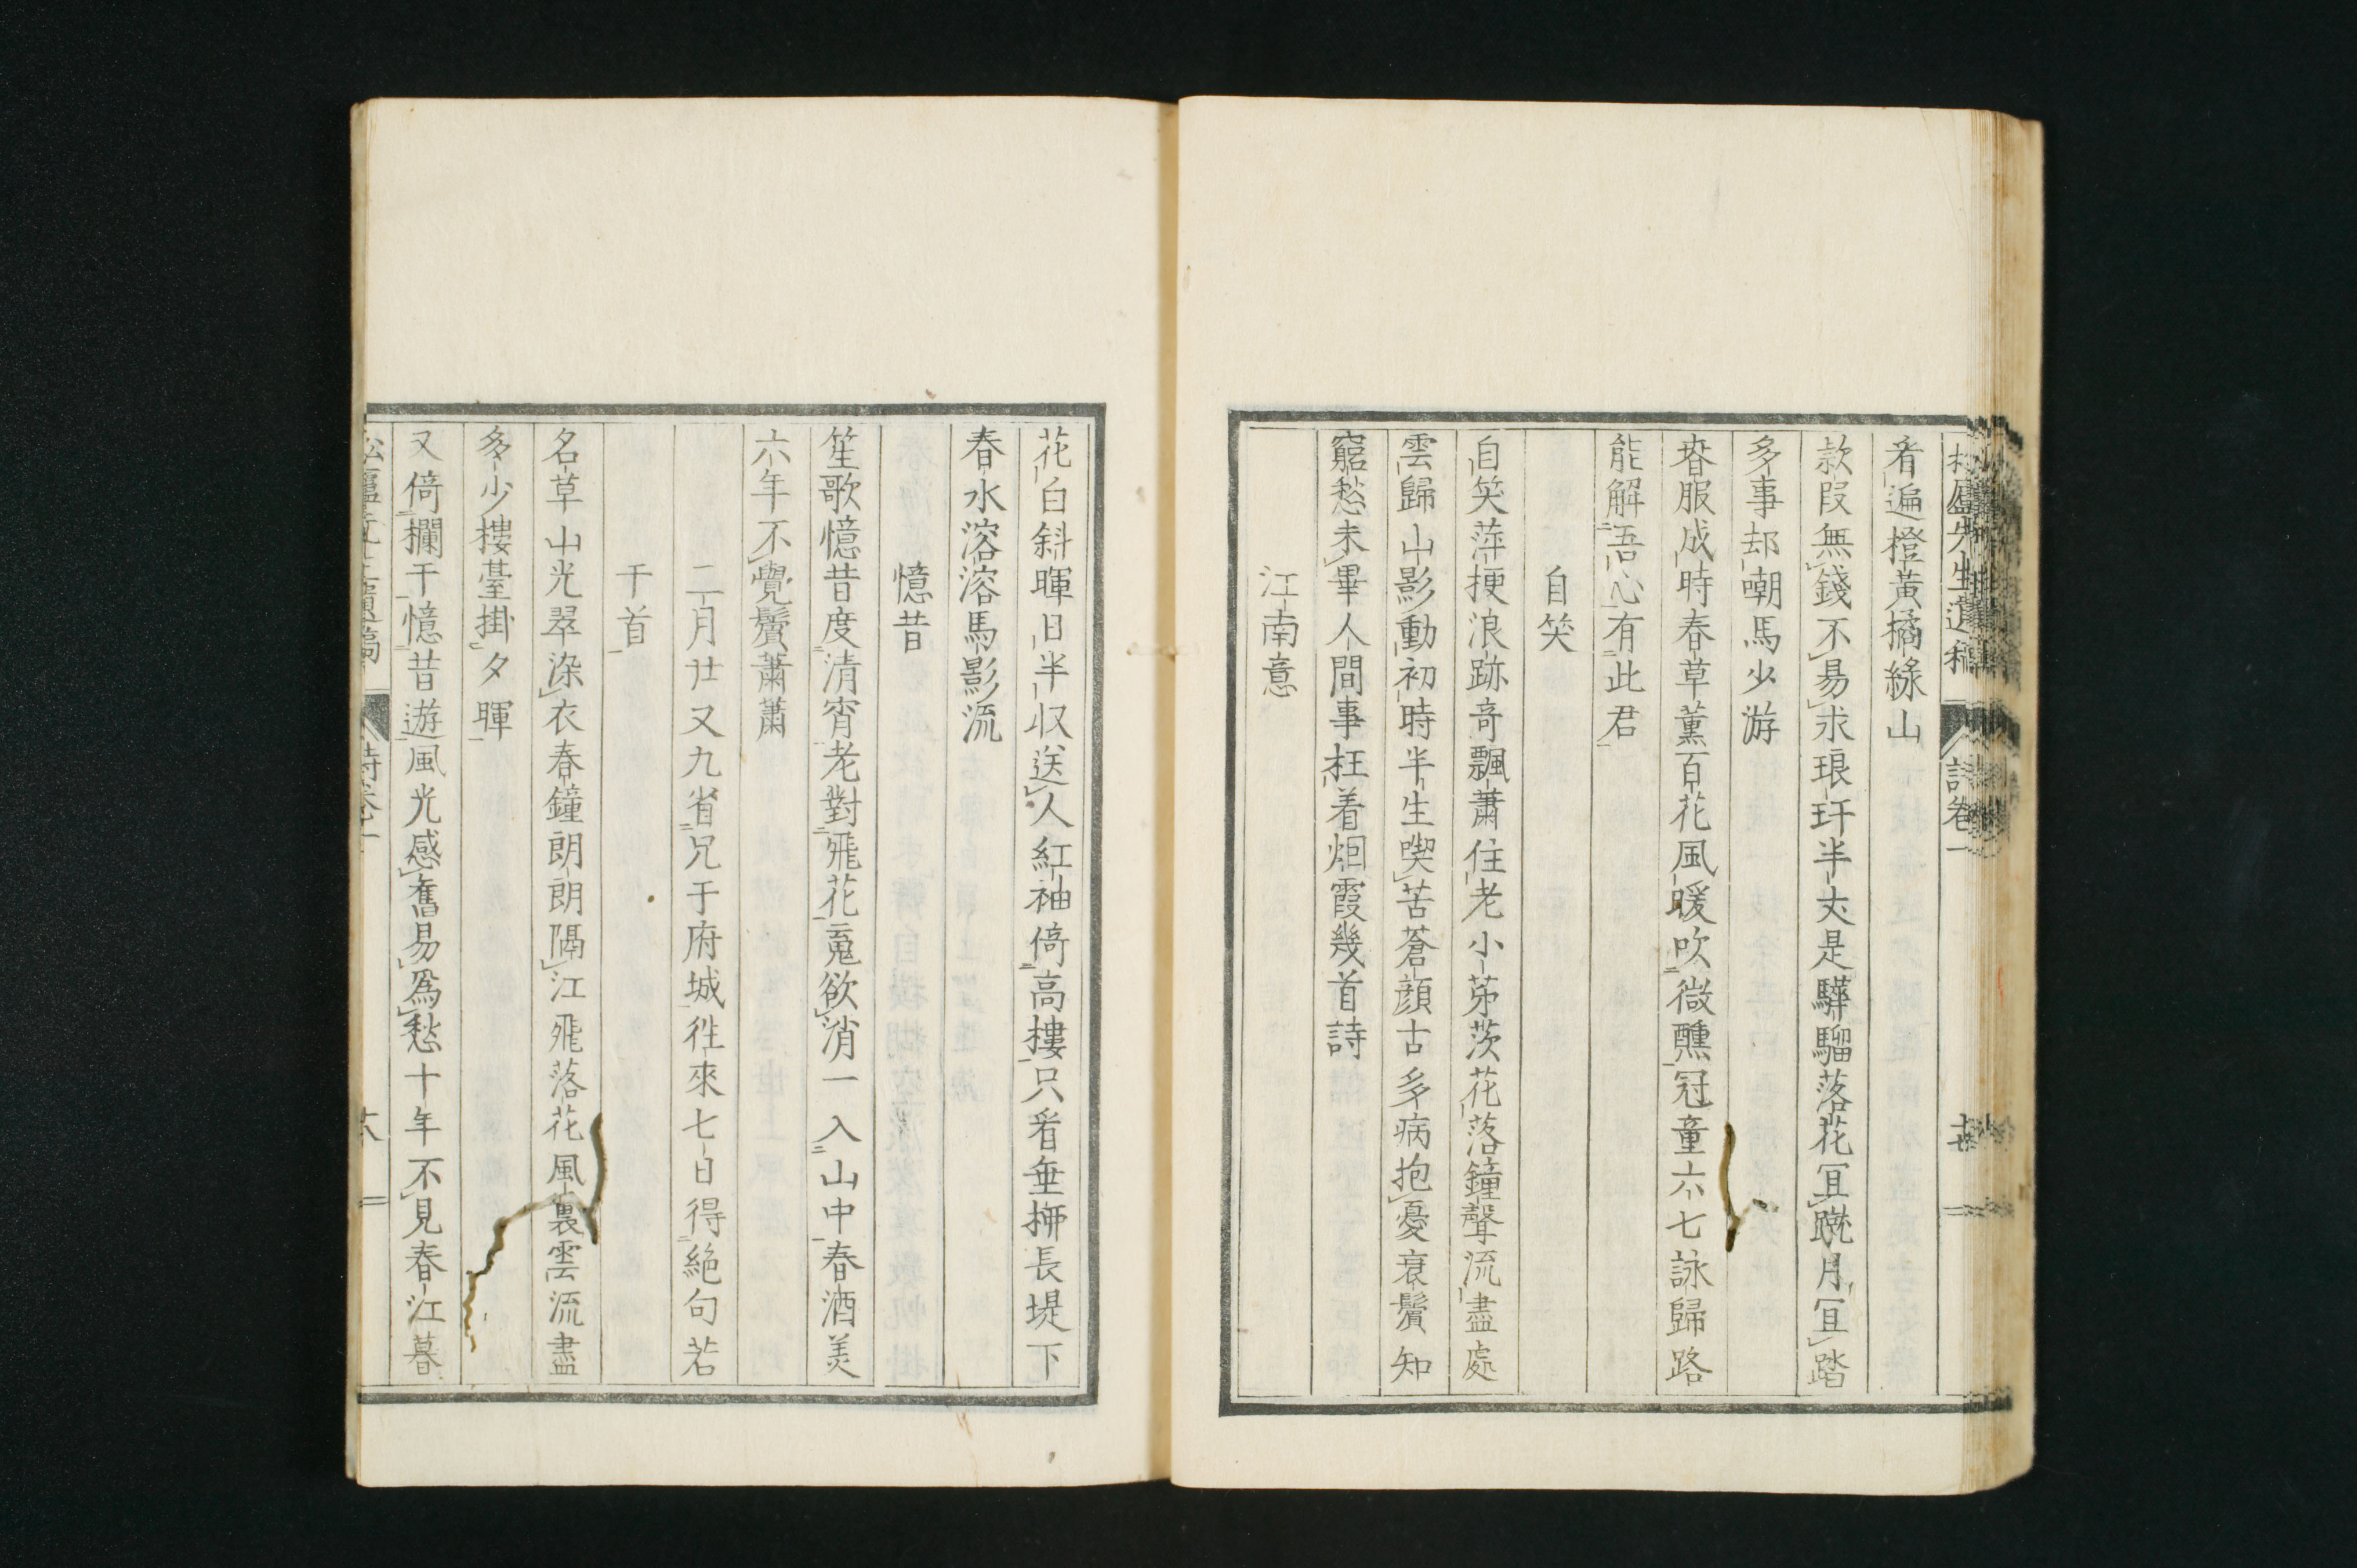 看遍橙黃橘綠山
欵叚無錢不易求琅玕半丈是驊騮落花冝蹺月冝踏
多事却嘲馬少游
春服成時春草薰百花風暖吹微醺冠童六七詠歸路
能解吾心有此君
自笑
自笑萍梗浪跡奇飄蕭住老小茅茨花落鐘聲流盡處
雲歸山影動初時半生喫苦蒼顔古多病抱憂衰鬢知
窮愁未畢人間事枉着烟霞幾首詩
江南意
花白斜暉日半収送人紅袖倚高樓只看垂栁長堤下
春水溶溶馬影流
憶昔
笙歌憶昔度清宵老對飛花䰟欲消一入山中春酒美
六年不覺鬢蕭蕭
二月廿又九省兄于府城徃來七日得絶句若
干首
名草山光翠染衣春鐘朗朗隔江飛落花風裏雲流盡
多少樓臺掛夕暉
又倚欄干憶昔遊風光感舊易爲愁十年不見春江暮